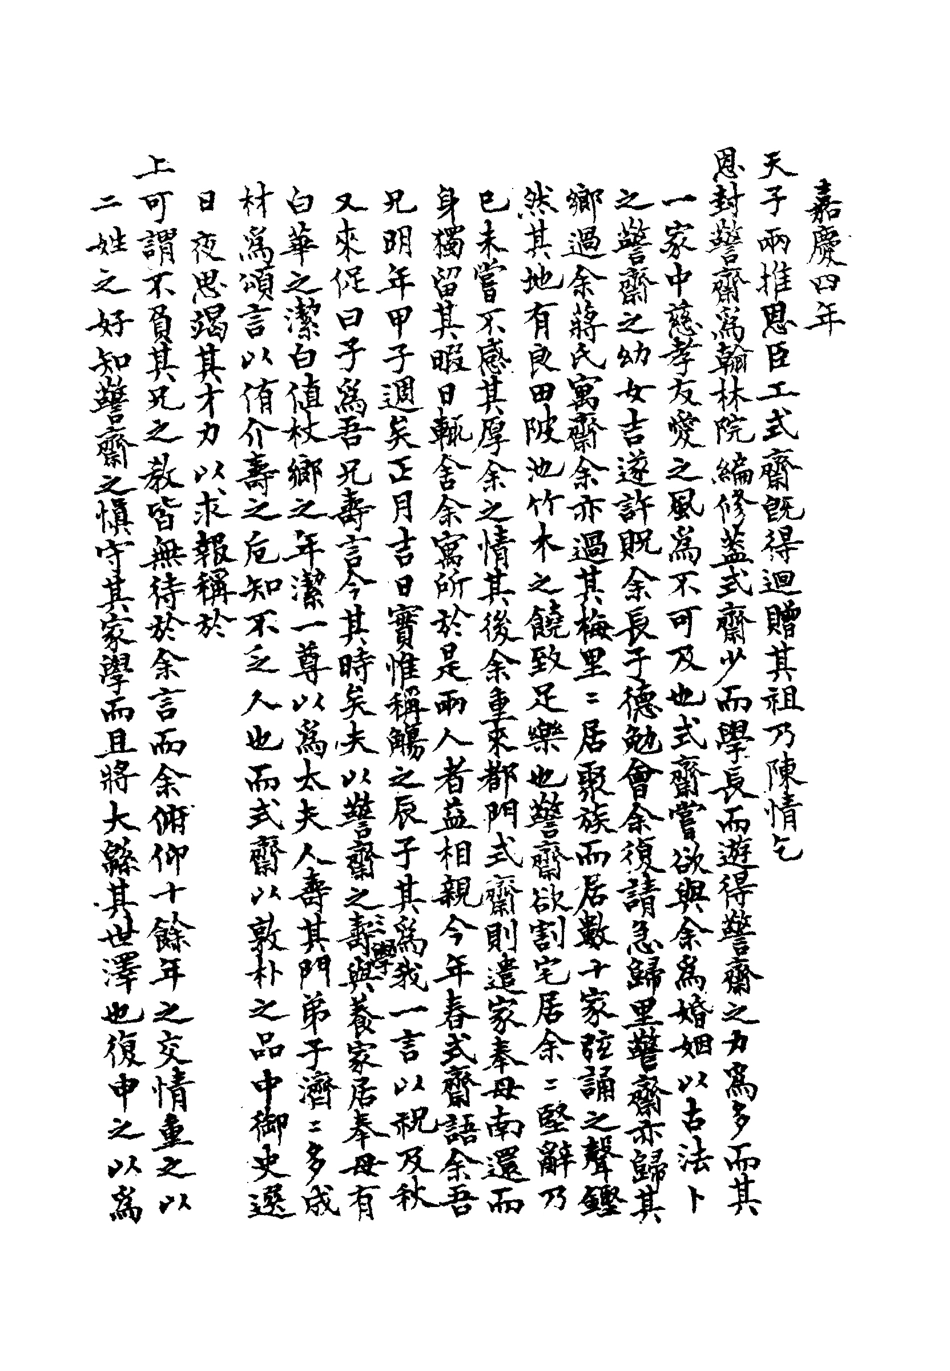 嘉慶四年
天子兩推恩臣工式齋旣得迴贈其祖乃陳情乞
恩封警齋爲翰林院編修蓋式齋少而學長而遊得警齋之力爲多而其
一家中慈孝友愛之風爲不可及也式齋嘗欲與余爲婚姻以古法卜
之警齋之幼女吉遂許貺余長子德勉會余復請急歸里警齋亦歸其
鄉過余蔣氏寓齋余亦過其梅里〻居聚族而居數十家弦誦之聲鏗
然其地有良田陂池竹木之饒致足樂也警齋欲割宅居余〻堅辭乃
已未嘗不感其厚余之情其後余重來都門式齋則遣家奉母南還而
身獨留其暇日輒舍余寓所於是兩人者益相親今年春式齋語余吾
兄明年甲子週矣正月吉日實惟稱觴之辰子其爲我一言以祝及秋
又來促曰子爲吾兄壽言今其時矣夫以警齋之壽與養家居奉母有
三學
白華之潔白值杖鄉之年潔一尊以爲太夫人壽其門弟子濟〻多成
材爲頌言以侑介壽之卮知不乏人也而式齋以敦朴之品中御史選
日夜思竭其才力以求報稱於
上可謂不負其兄之教皆無待於余言而余俯仰十餘年之交情重之以
二姓之好知警齋之慎守其家學而且將大繇其世澤也復申之以爲